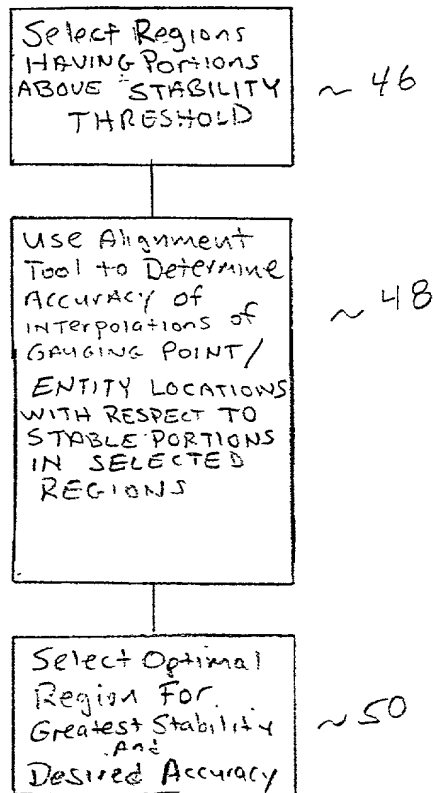 Select Regions
HAVING Portions
ABOVE STABILITY
THRESHOLD
~ 46
Use Alignment
Tool to Determine
ACCURACY of
INterpolations of
GAUGING POINT/
ENTITY LOCATIONS
WITH RESPECT TO
STABLE PORTIONS
IN SELECTED
REGIONS
~ 48
Select Optimal
Region For
Greatest Stability
And
Desired Accuracy
~ 50